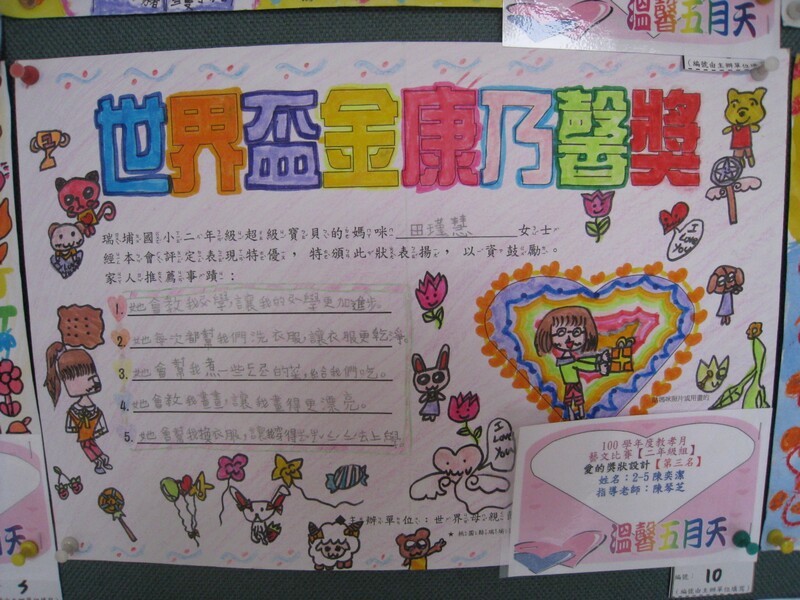 溫馨五月天
世界盃金康乃馨獎
瑞埔國小二年級超級寶貝的媽咪 田瑾慧 女士
經本會評定表現特優，特頒此狀表揚，以資鼓勵。
家人推薦事蹟：
1. 她會教我功學,讓我的功學更加進步。
2. 她每次都幫我們洗衣服,讓衣服更乾淨。
3. 她會幫我煮一些ㄛㄛ的菜,給我們吃。
4. 她會教我畫畫,讓我畫得更漂亮。
5. 她會幫我
去上學
I Love You
I Love You
主辦單位：世界母親
100學年度教孝月
藝文比賽【二年級組】
愛的獎狀設計【第三名】
姓名：2-5 陳奕潔
指導老師：陳琴芝
溫馨五月天
編號： 10
(編號由主辦單位填寫)
月天
5